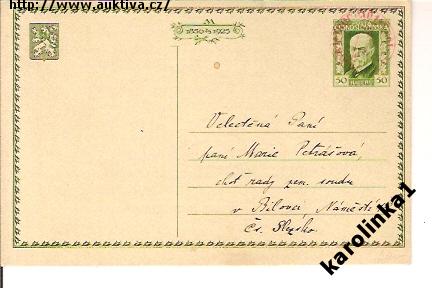 http://www.auktiva.cz/
1850 1925
50 50
Veletěná Paní
paní Marie Petrášová,
choť rady zem. soudu
v Bílovci, Náměstí
Čs. Slezsko.
karolinka1